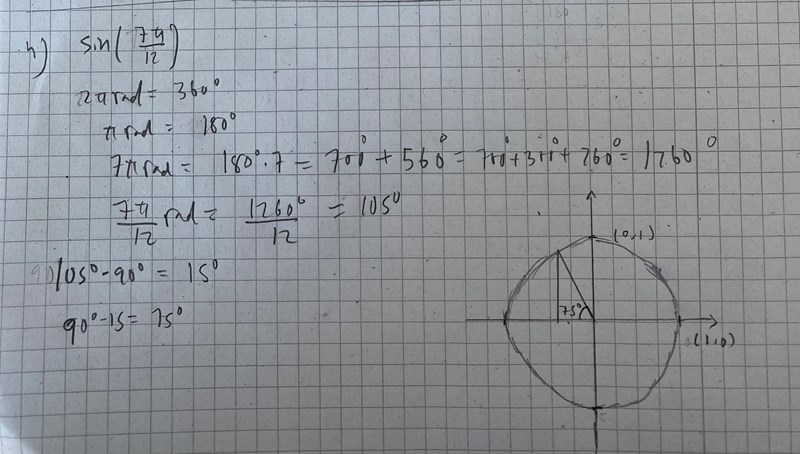 h) sin(7π/12)
2π rad = 360°
π rad = 180°
7π rad = 180°·7 = 700° + 560° = 700°+300°+260° = 1260°
7π/12 rad = 1260°/12 = 105°
105°-90° = 15°
90°-15 = 75°
(0,1)
75°
(1,0)